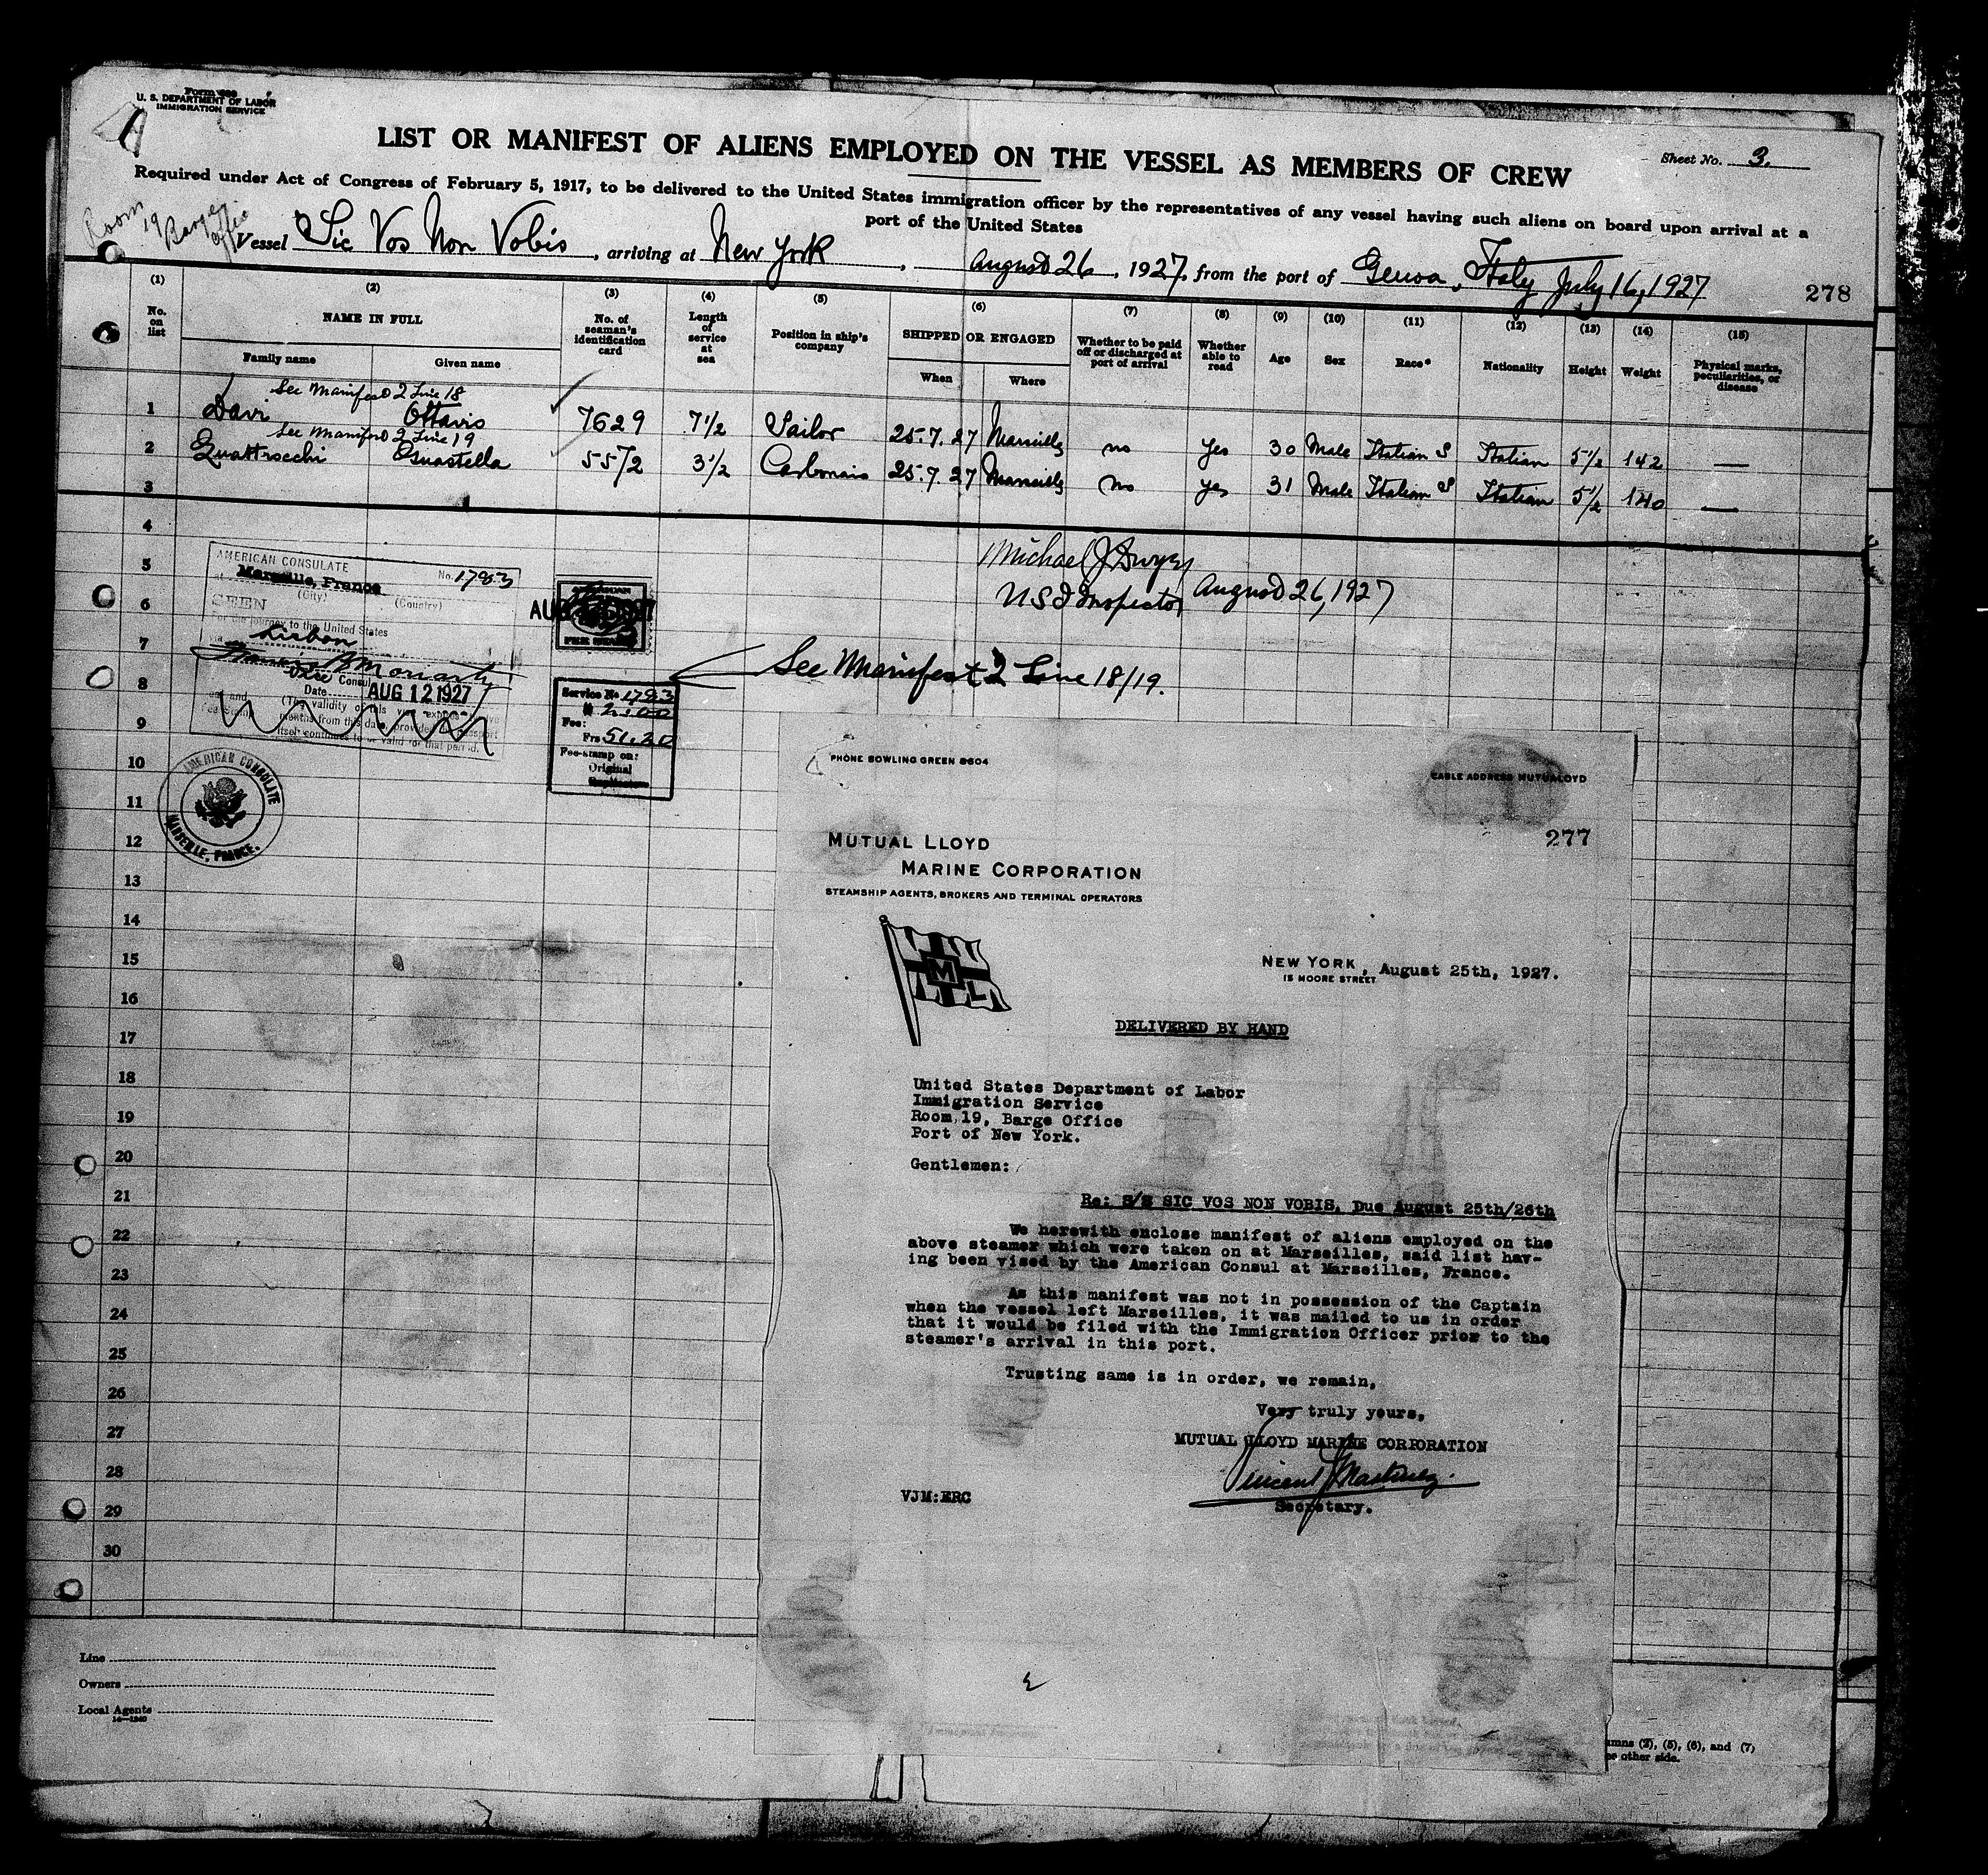 Form 680
U. S. DEPARTMENT OF LABOR
IMMIGRATION SERVICE
LIST OR MANIFEST OF ALIENS EMPLOYED ON THE VESSEL AS MEMBERS OF CREW
Sheet No. 3.
Required under Act of Congress of February 5, 1917, to be delivered to the United States immigration officer by the representatives of any vessel having such aliens on board upon arrival at a
port of the United States
Room 19 Barge Office
Vessel Sic Vos Non Vobis, arriving at New York, August 26, 1927, from the port of Genoa, Italy July 16, 1927
278
(1) (2) (3) (4) (5) (6) (7) (8) (9) (10) (11) (12) (13) (14) (15)
No. on list
NAME IN FULL
Family name Given name
No. of seaman's identification card
Length of service at sea
Position in ship's company
SHIPPED OR ENGAGED
When Where
Whether to be paid off or discharged at port of arrival
Whether able to read
Age
Sex
Race*
Nationality
Height
Weight
Physical marks, peculiarities, or disease
See Manifest 2 Line 18
1 Davi Ottavio 7629 7 1/2 Sailor 25.7.27 Marseilles no yes 30 Male Italian S Italian 5 1/2 142 —
See Manifest 2 Line 19
2 Quattrocchi Guastella 5572 3 1/2 Carbonaio 25.7.27 Marseilles no yes 31 Male Italian S Italian 5 1/2 140 —
3
4
5
6
7
8
9
10
11
12
13
14
15
16
17
18
19
20
21
22
23
24
25
26
27
28
29
30
AMERICAN CONSULATE
No. 1783
at Marseille, France
(City) (Country)
SEEN
For the journey to the United States
via Lisbon
Vice Consul
Date AUG 12 1927
(The validity of this visa expires twelve
months from this date, provided the passport
itself continues to be valid for that period.
AMERICAN CONSULATE
MARSEILLE, FRANCE.
Service No 1783
$ 2.00
Fee:
Frs 51.20
Fee-stamp on:
Original
Michael J Dwyer
USI Inspector August 26, 1927
See Manifest 2 Line 18/19.
PHONE BOWLING GREEN 8604
CABLE ADDRESS MUTUALOYD
277
MUTUAL LLOYD
MARINE CORPORATION
STEAMSHIP AGENTS, BROKERS AND TERMINAL OPERATORS
M
M L
NEW YORK, August 25th, 1927.
15 MOORE STREET
DELIVERED BY HAND
United States Department of Labor
Immigration Service
Room 19, Barge Office
Port of New York.
Gentlemen:
Re: S/S SIC VOS NON VOBIS, Due August 25th/26th
We herewith enclose manifest of aliens employed on the
above steamer which were taken on at Marseilles, said list hav-
ing been vised by the American Consul at Marseilles, France.
As this manifest was not in possession of the Captain
when the vessel left Marseilles, it was mailed to us in order
that it would be filed with the Immigration Officer prior to the
steamer's arrival in this port.
Trusting same is in order, we remain,
Very truly yours,
MUTUAL LLOYD MARINE CORPORATION
Vincent J Martinez.
Secretary.
VJM:ERC
Line
Owners
Local Agents
14—1240
umns (2), (5), (6), and (7)
other side.